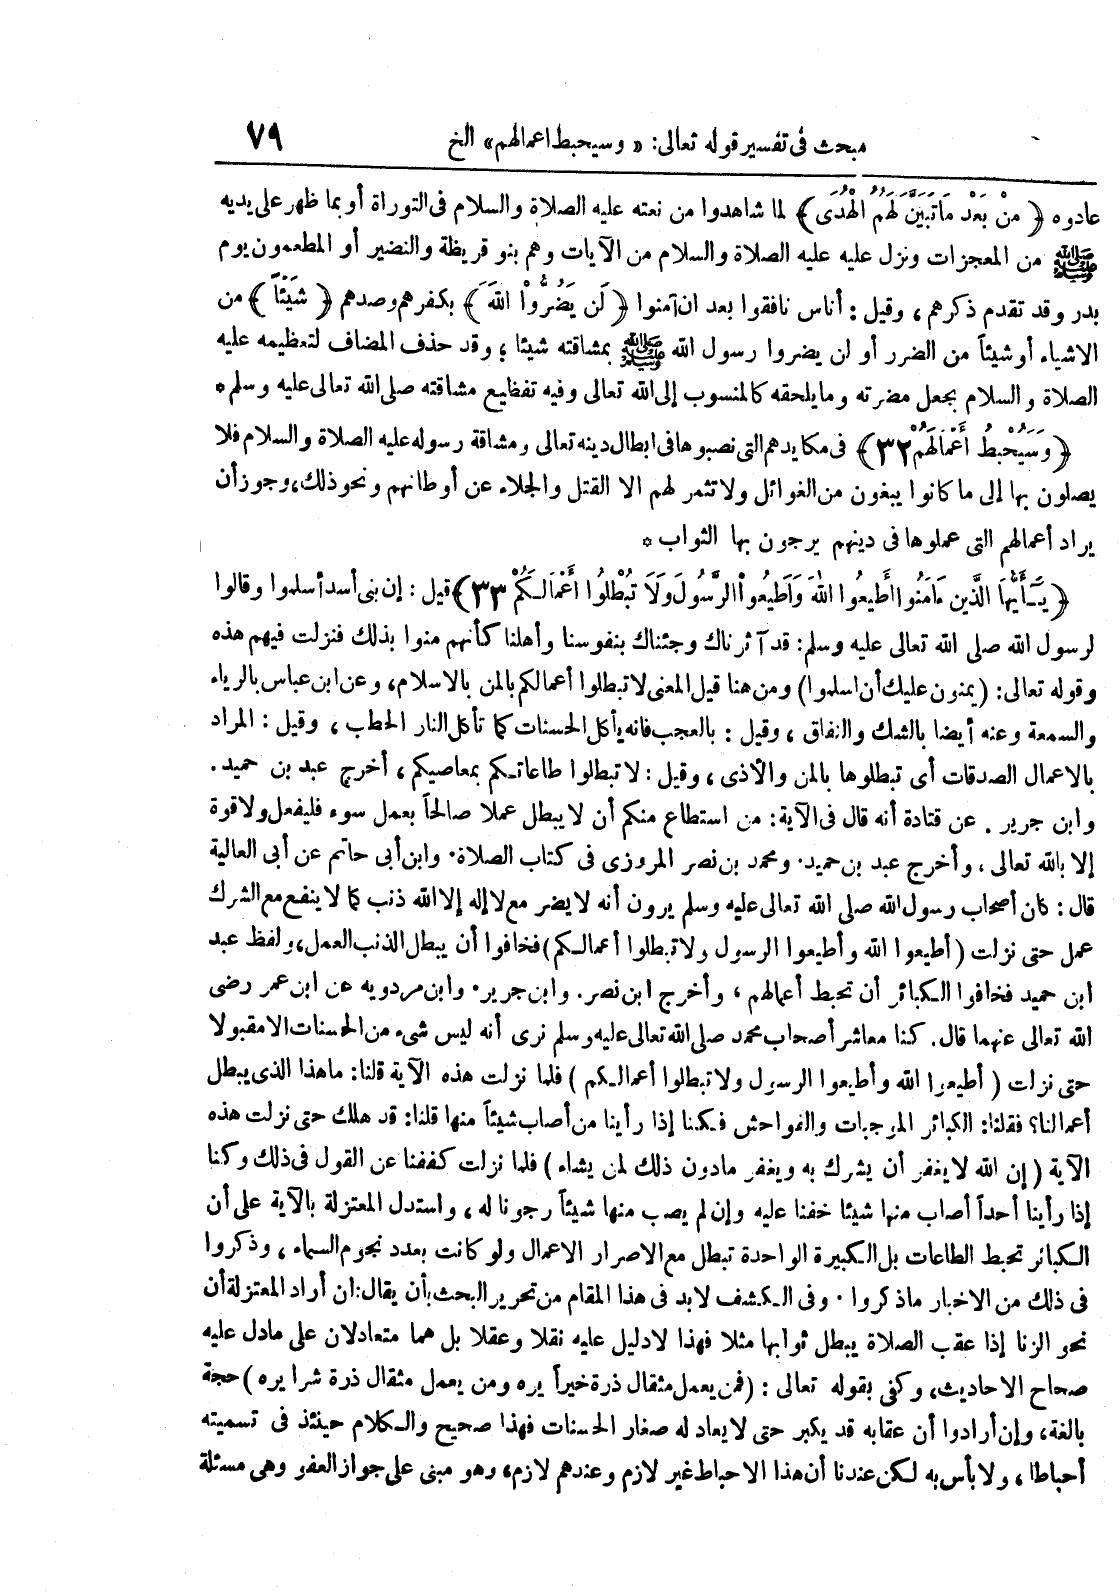 مبحث فى تفسير قوله تعالى: « وسيحبط اعمالهم» الخ ٧٩
عادوه ﴿ مِنْ بَعْدِ مَاتَبَيَّنَ لَهُمُ الْهُدَى ﴾ لما شاهدوا من نعته عليه الصلاة والسلام فى التوراة أو بما ظهر على يديه
ﷺ من المعجزات ونزل عليه عليه الصلاة والسلام من الآيات وهم بنو قريظة والنضير أو المطعمون يوم
بدر وقد تقدم ذكرهم ، وقيل : أناس نافقوا بعد ان آمنوا ﴿ لَن يَضُرُّواْ اللَّهَ ﴾ بكفرهم وصدهم ﴿ شَيْئاً ﴾ من
الاشياء أو شيئاً من الضرر أو لن يضروا رسول الله ﷺ بمشاقته شيئا ؛ وقد حذف المضاف لتعظيمه عليه
الصلاة والسلام بجعل مضرته وما يلحقه كالمنسوب إلى الله تعالى وفيه تفظيع مشاقته صلى الله تعالى عليه وسلم *
﴿ وَسَيُحْبِطُ أَعْمَالَهُمْ ٣٢ ﴾ فى مكايدهم التى نصبوها فى ابطال دينه تعالى ومشاقة رسوله عليه الصلاة والسلام فلا
يصلون بها إلى ما كانوا يبغون من الغوائل ولا تثمر لهم الا القتل والجلاء عن أوطانهم ونحو ذلك، وجوز أن
يراد أعمالهم التى عملوها فى دينهم يرجون بها الثواب *
﴿ يَـٰٓأَيُّهَا الَّذِينَ ءَامَنُوا أَطِيعُوا اللَّهَ وَأَطِيعُواْ الرَّسُولَ وَلَا تُبْطِلُوا أَعْمَالَكُمْ ٣٣ ﴾ قيل : إن بنى أسد أسلموا وقالوا
لرسول الله صلى الله تعالى عليه وسلم: قد آثرناك وجئناك بنفوسنا وأهلنا كأنهم منوا بذلك فنزلت فيهم هذه
وقوله تعالى: (يمنون عليك أن اسلموا) ومن هنا قيل المعنى لا تبطلوا أعمالكم بالمن بالاسلام، وعن ابن عباس بالرياء
والسمعة وعنه أيضا بالشك والنفاق ، وقيل : بالعجب فانه يأكل الحسنات كما تأكل النار الحطب ، وقيل : المراد
بالاعمال الصدقات أى تبطلوها بالمن والأذى ، وقيل : لا تبطلوا طاعاتكم بمعاصيكم ، أخرج عبد بن حميد .
وابن جرير . عن قتادة أنه قال فى الآية : من استطاع منكم أن لا يبطل عملا صالحاً بعمل سوء فليفعل ولا قوة
إلا بالله تعالى ، وأخرج عبد بن حميد. ومحمد بن نصر المروزى فى كتاب الصلاة. وابن أبى حاتم عن أبى العالية
قال : كان أصحاب رسول الله صلى الله تعالى عليه وسلم يرون أنه لا يضر مع لا إله إلا الله ذنب كما لا ينفع مع الشرك
عمل حتى نزلت ( أطيعوا الله وأطيعوا الرسول ولا تبطلوا أعمالكم ) فخافوا أن يبطل الذنب العمل، ولفظ عبد
ابن حميد فخافوا الكبائر أن تحبط أعمالهم ، وأخرج ابن نصر. وابن جرير. وابن مردويه عن ابن عمر رضى
الله تعالى عنهما قال. كنا معاشر أصحاب محمد صلى الله تعالى عليه وسلم نرى أنه ليس شىء من الحسنات الا مقبولا
حتى نزلت ( أطيعوا الله وأطيعوا الرسول ولا تبطلوا أعمالكم ) فلما نزلت هذه الآية قلنا: ما هذا الذى يبطل
أعمالنا؟ فقلنا: الكبائر الموجبات والفواحش فكنا إذا رأينا من أصاب شيئاً منها قلنا: قد هلك حتى نزلت هذه
الآية ( إن الله لا يغفر أن يشرك به ويغفر مادون ذلك لمن يشاء ) فلما نزلت كففنا عن القول فى ذلك وكنا
إذا رأينا أحداً أصاب منها شيئا خفنا عليه وإن لم يصب منها شيئاً رجونا له ، واستدل المعتزلة بالآية على أن
الكبائر تحبط الطاعات بل الكبيرة الواحدة تبطل مع الاصرار الاعمال ولو كانت بعدد نجوم السماء ، وذكروا
فى ذلك من الاخبار ماذكروا . وفى الكشف لابد فى هذا المقام من تحرير البحث بأن يقال: ان أراد المعتزلة أن
نحو الزنا إذا عقب الصلاة يبطل ثوابها مثلا فهذا لا دليل عليه نقلا وعقلا بل هما متعادلان على مادل عليه
صحاح الاحاديث، وكفى بقوله تعالى : (فمن يعمل مثقال ذرة خيراً يره ومن يعمل مثقال ذرة شرا يره ) حجة
بالغة، وإن أرادوا أن عقابه قد يكبر حتى لا يعاد له صغار الحسنات فهذا صحيح والكلام حينئذ فى تسميته
أحباطا ، ولا بأس به لكن عندنا أن هذا الاحباط غير لازم وعندهم لازم، وهو مبنى على جواز العفو وهى مسئلة